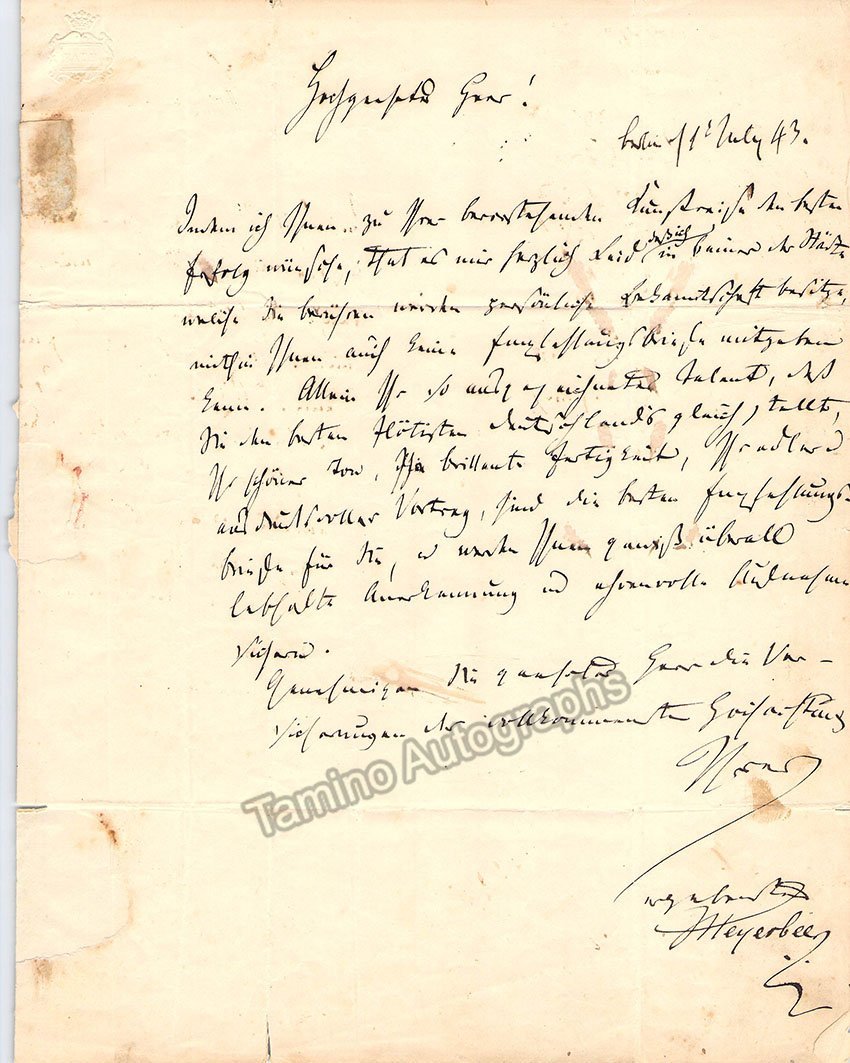 Hochgeehrter Herr!
Berlin d 1t July 43.
Indem ich Ihnen zu Ihrer bevorstehenden Kunstreise den besten
Erfolg wünsche, thut es mir herzlich Leid daß ich in keiner der Städte
welche Sie berühren werden persönliche Bekanntschaft besitze,
mithin Ihnen auch keine Empfehlungsbriefe mitgeben
kann. Allein Ihr so ausgezeichnetes Talent, das
Sie den besten Flötisten Deutschlands gleich stellt,
Ihr schöner Ton, Ihre brillante Fertigkeit, Ihr edler u
ausdrucksvoller Vortrag, sind die besten Empfehlungs-
briefe für Sie, u werden Ihnen gewiß überall
lebhafte Anerkennung und ehrenvolle Aufnahme
sichern.
Genehmigen Sie geehrter Herr die Ver-
sicherungen der vollkommensten Hochachtung
Ihres
ergebensten
Meyerbeer
Tamino Autographs